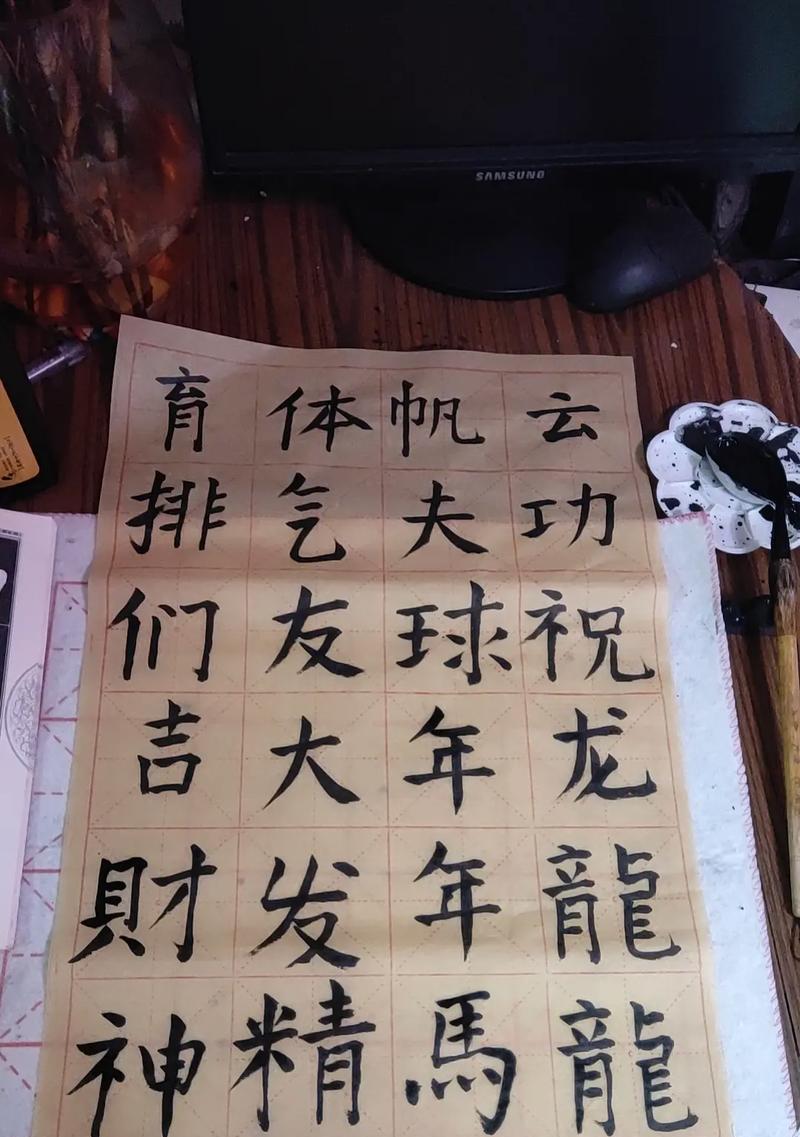 SAMSUNG
云帆体育
功夫气排
祝球友们
龙年大吉
龍年发財
龍馬精神